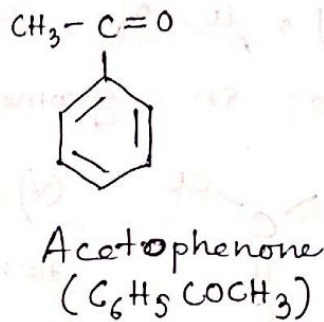 CH₃ – C = O
Acetophenone
(C₆H₅COCH₃)